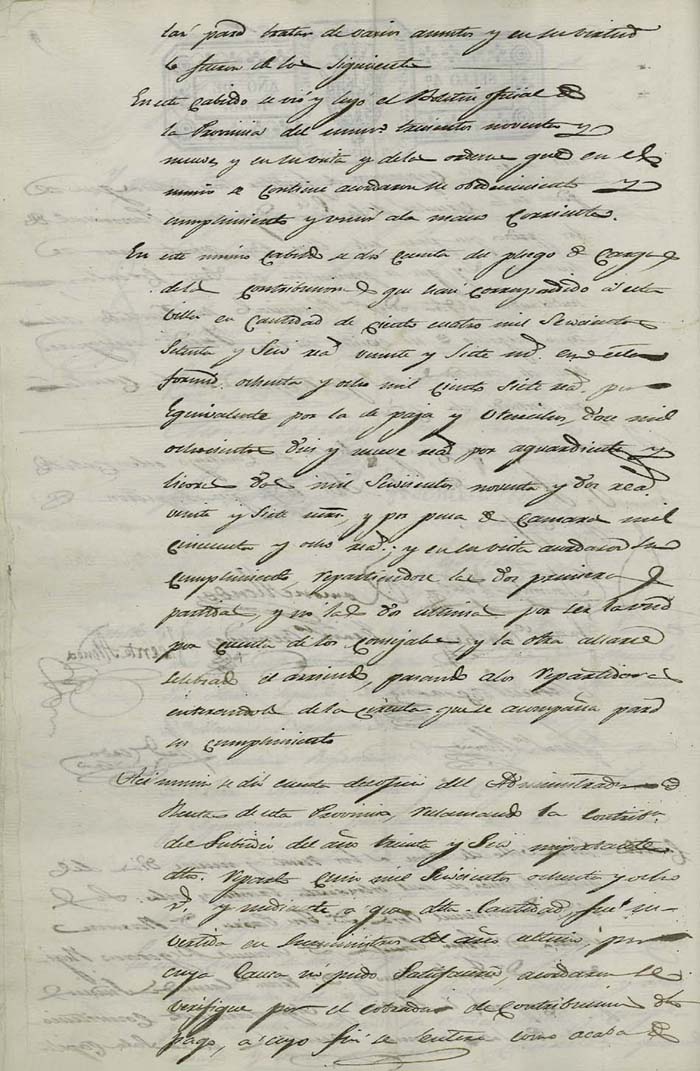 para tratar de varios asuntos y en su virtud
lo fueron de los siguientes
En este Cabildo se vió y leyó el Boletin oficial de
la Provincia del numero trescientos noventa y
nueve y en su vista y de la orden que en el
mismo se contiene acordaron su obedecimiento y
cumplimiento y unir a la mano corriente.
En este mismo Cabildo se dió cuenta del pliego de Cargo
de la Contribucion que han correspondido á esta
Villa en Cantidad de Ciento cuatro mil Seiscientos
Setenta y Seis rea.s veinte y Siete ms. en esta
forma: ochenta y ocho mil ciento siete rea.s por
Equivalente por la de paja y Utensilios, doce mil
ochocientos diez y nueve rea.s por aguardiente y
licores dos mil Seiscientos noventa y dos rea.s
veinte y Siete mrs, y por pesca de Camara mil
Cincuenta y ocho rea.s; y en su vista acordaron su
Cumplimiento, repartiendose las dos primeras
partidas y no las dos ultimas por ser la una
por cuenta de los Consejales y la otra
celebrado el arriendo, pasando a los repartidores
enterandole de la Circular que se acompaña para
su cumplimiento
Asi mismo se dió cuenta de oficio del Administrador de
Rentas de esta Provincia, reclamando la Contribn.
del Subsidio del año treinta y Seis importante
dho. reparto Cinco mil Seiscientos ochenta y ocho
r.s y mediante a que dha. Cantidad fue in-
vertida en Suministros del año ultimo por
cuya Causa no pudo Satisfacerse, acordaron se
verifique por el cobrador de Contribucion su
pago, á cuyo fin se entere como acaba de